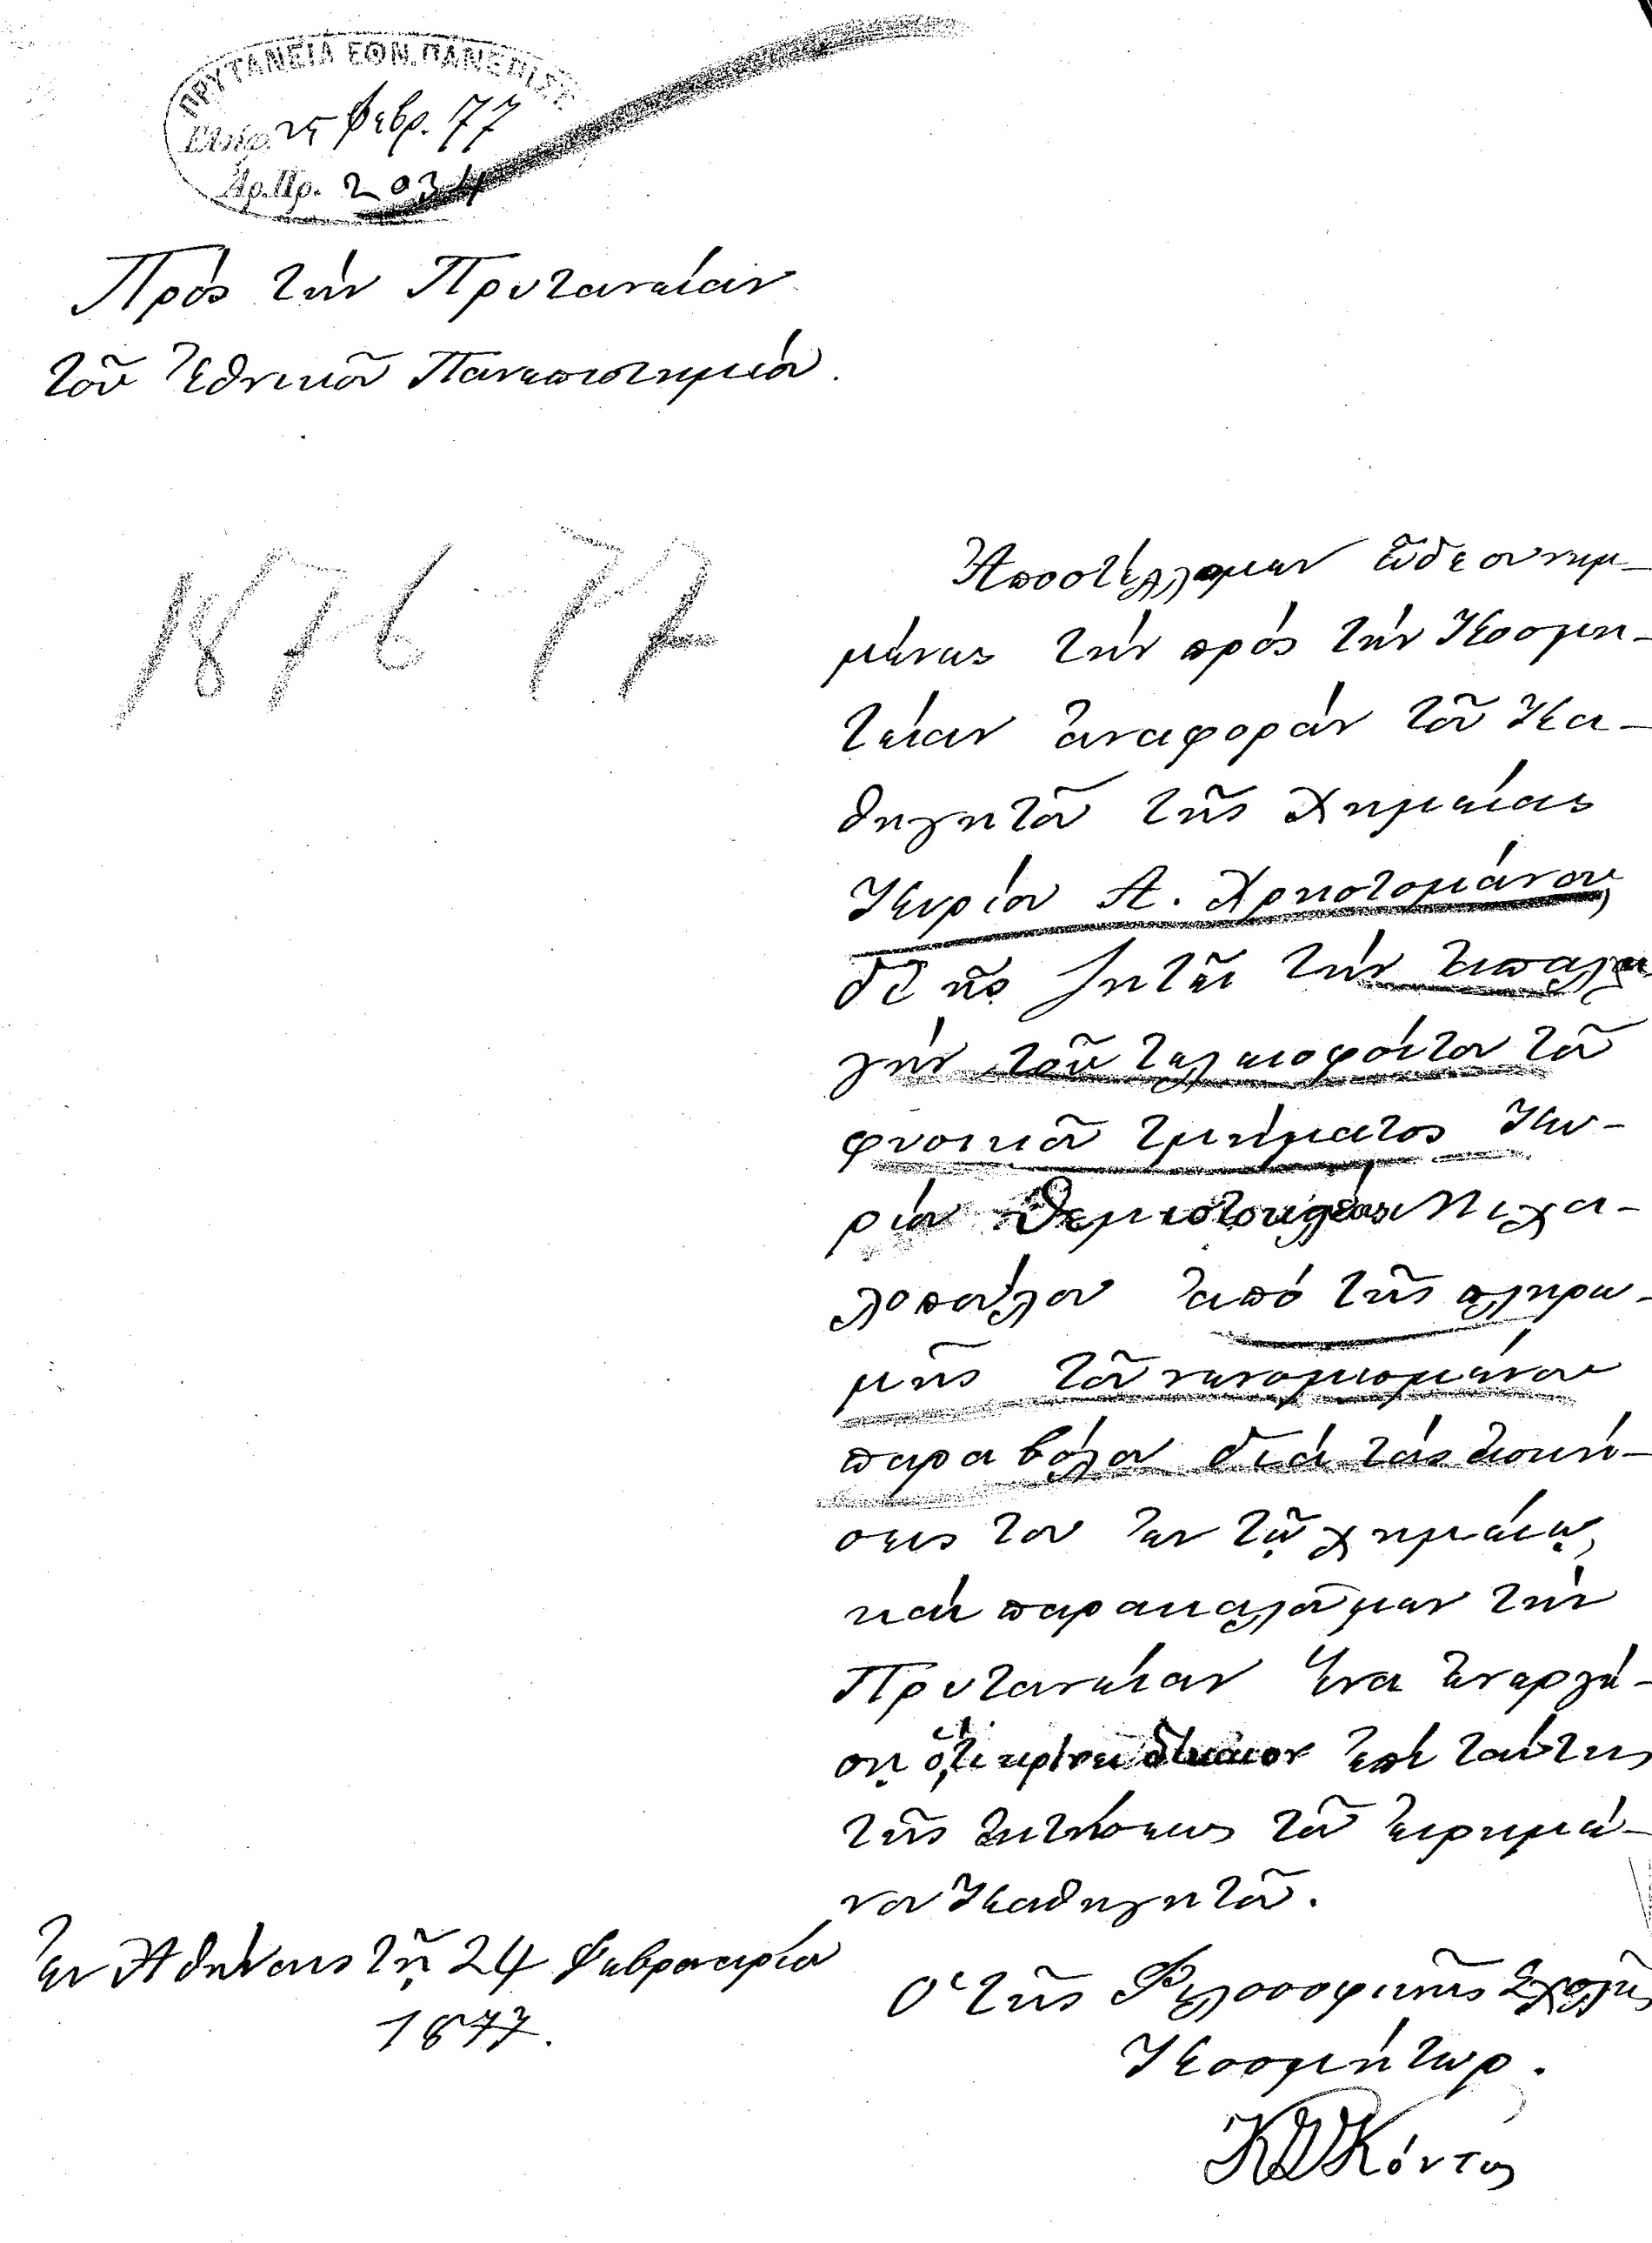 ΠΡΥΤΑΝΕΙΑ ΕΘΝ. ΠΑΝΕΠΙΣΤ.
Ελήφ. 25 Φεβρ. 77
Αρ.Πρ. 2034
Πρὸς τὴν Πρυτανείαν
τοῦ Ἐθνικοῦ Πανεπιστημίου.
1876-77
Ἀποστέλλομεν ὧδε συνημ-
μένως τὴν πρὸς τὴν Κοσμη-
τείαν ἀναφορὰν τοῦ Κα-
θηγητοῦ τῆς Χημείας
Κυρίου Α. Χρηστομάνου,
δι' ἧς ζητεῖ τὴν ἀπαλλα
γὴν τοῦ τελειοφοίτου τοῦ
φυσικοῦ τμήματος Κυ-
ρίου Θεμιστοκλέους Μιχα-
λοπούλου ἀπὸ τῆς πληρω-
μῆς τοῦ νενομισμένου
παραβόλου διὰ τὰς ἀσκή-
σεις του ἐν τῷ χημείῳ,
καὶ παρακαλοῦμεν τὴν
Πρυτανείαν ἵνα ἐνεργή-
σῃ ὅ,τι κρίνει δίκαιον ἐπὶ ταύτης
τῆς αἰτήσεως τοῦ εἰρημέ-
νου Καθηγητοῦ.
Ἐν Ἀθήναις τῇ 24 Φεβρουαρίου
1877.
Ὁ τῆς Φιλοσοφικῆς Σχολῆς
Κοσμήτωρ.
Κ Σ Κόντος